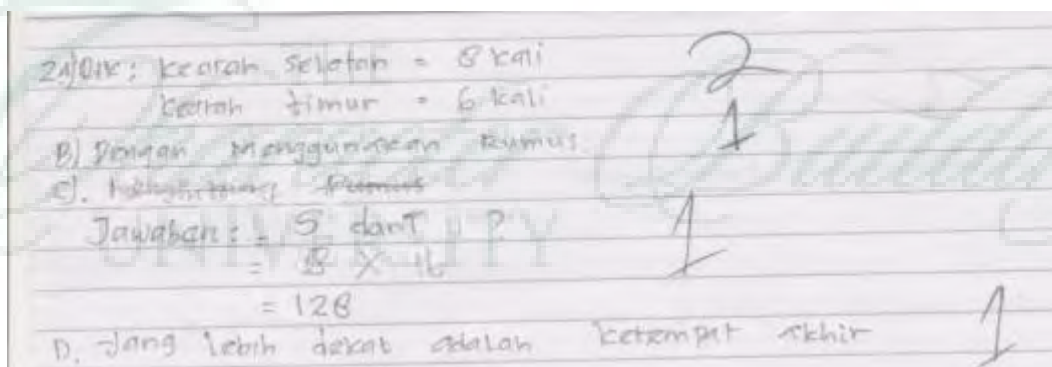 2A) Dik: kearah selatan = 8 kali
kearah timur = 6 kali
2
B) Dengan Menggunakan Rumus
1
C). Menghitung Rumus
Jawaban: = S dan T
= 8 X 16
= 128
1
D. Jang lebih dekat adalah ketempat akhir
1
UNIVERSITY